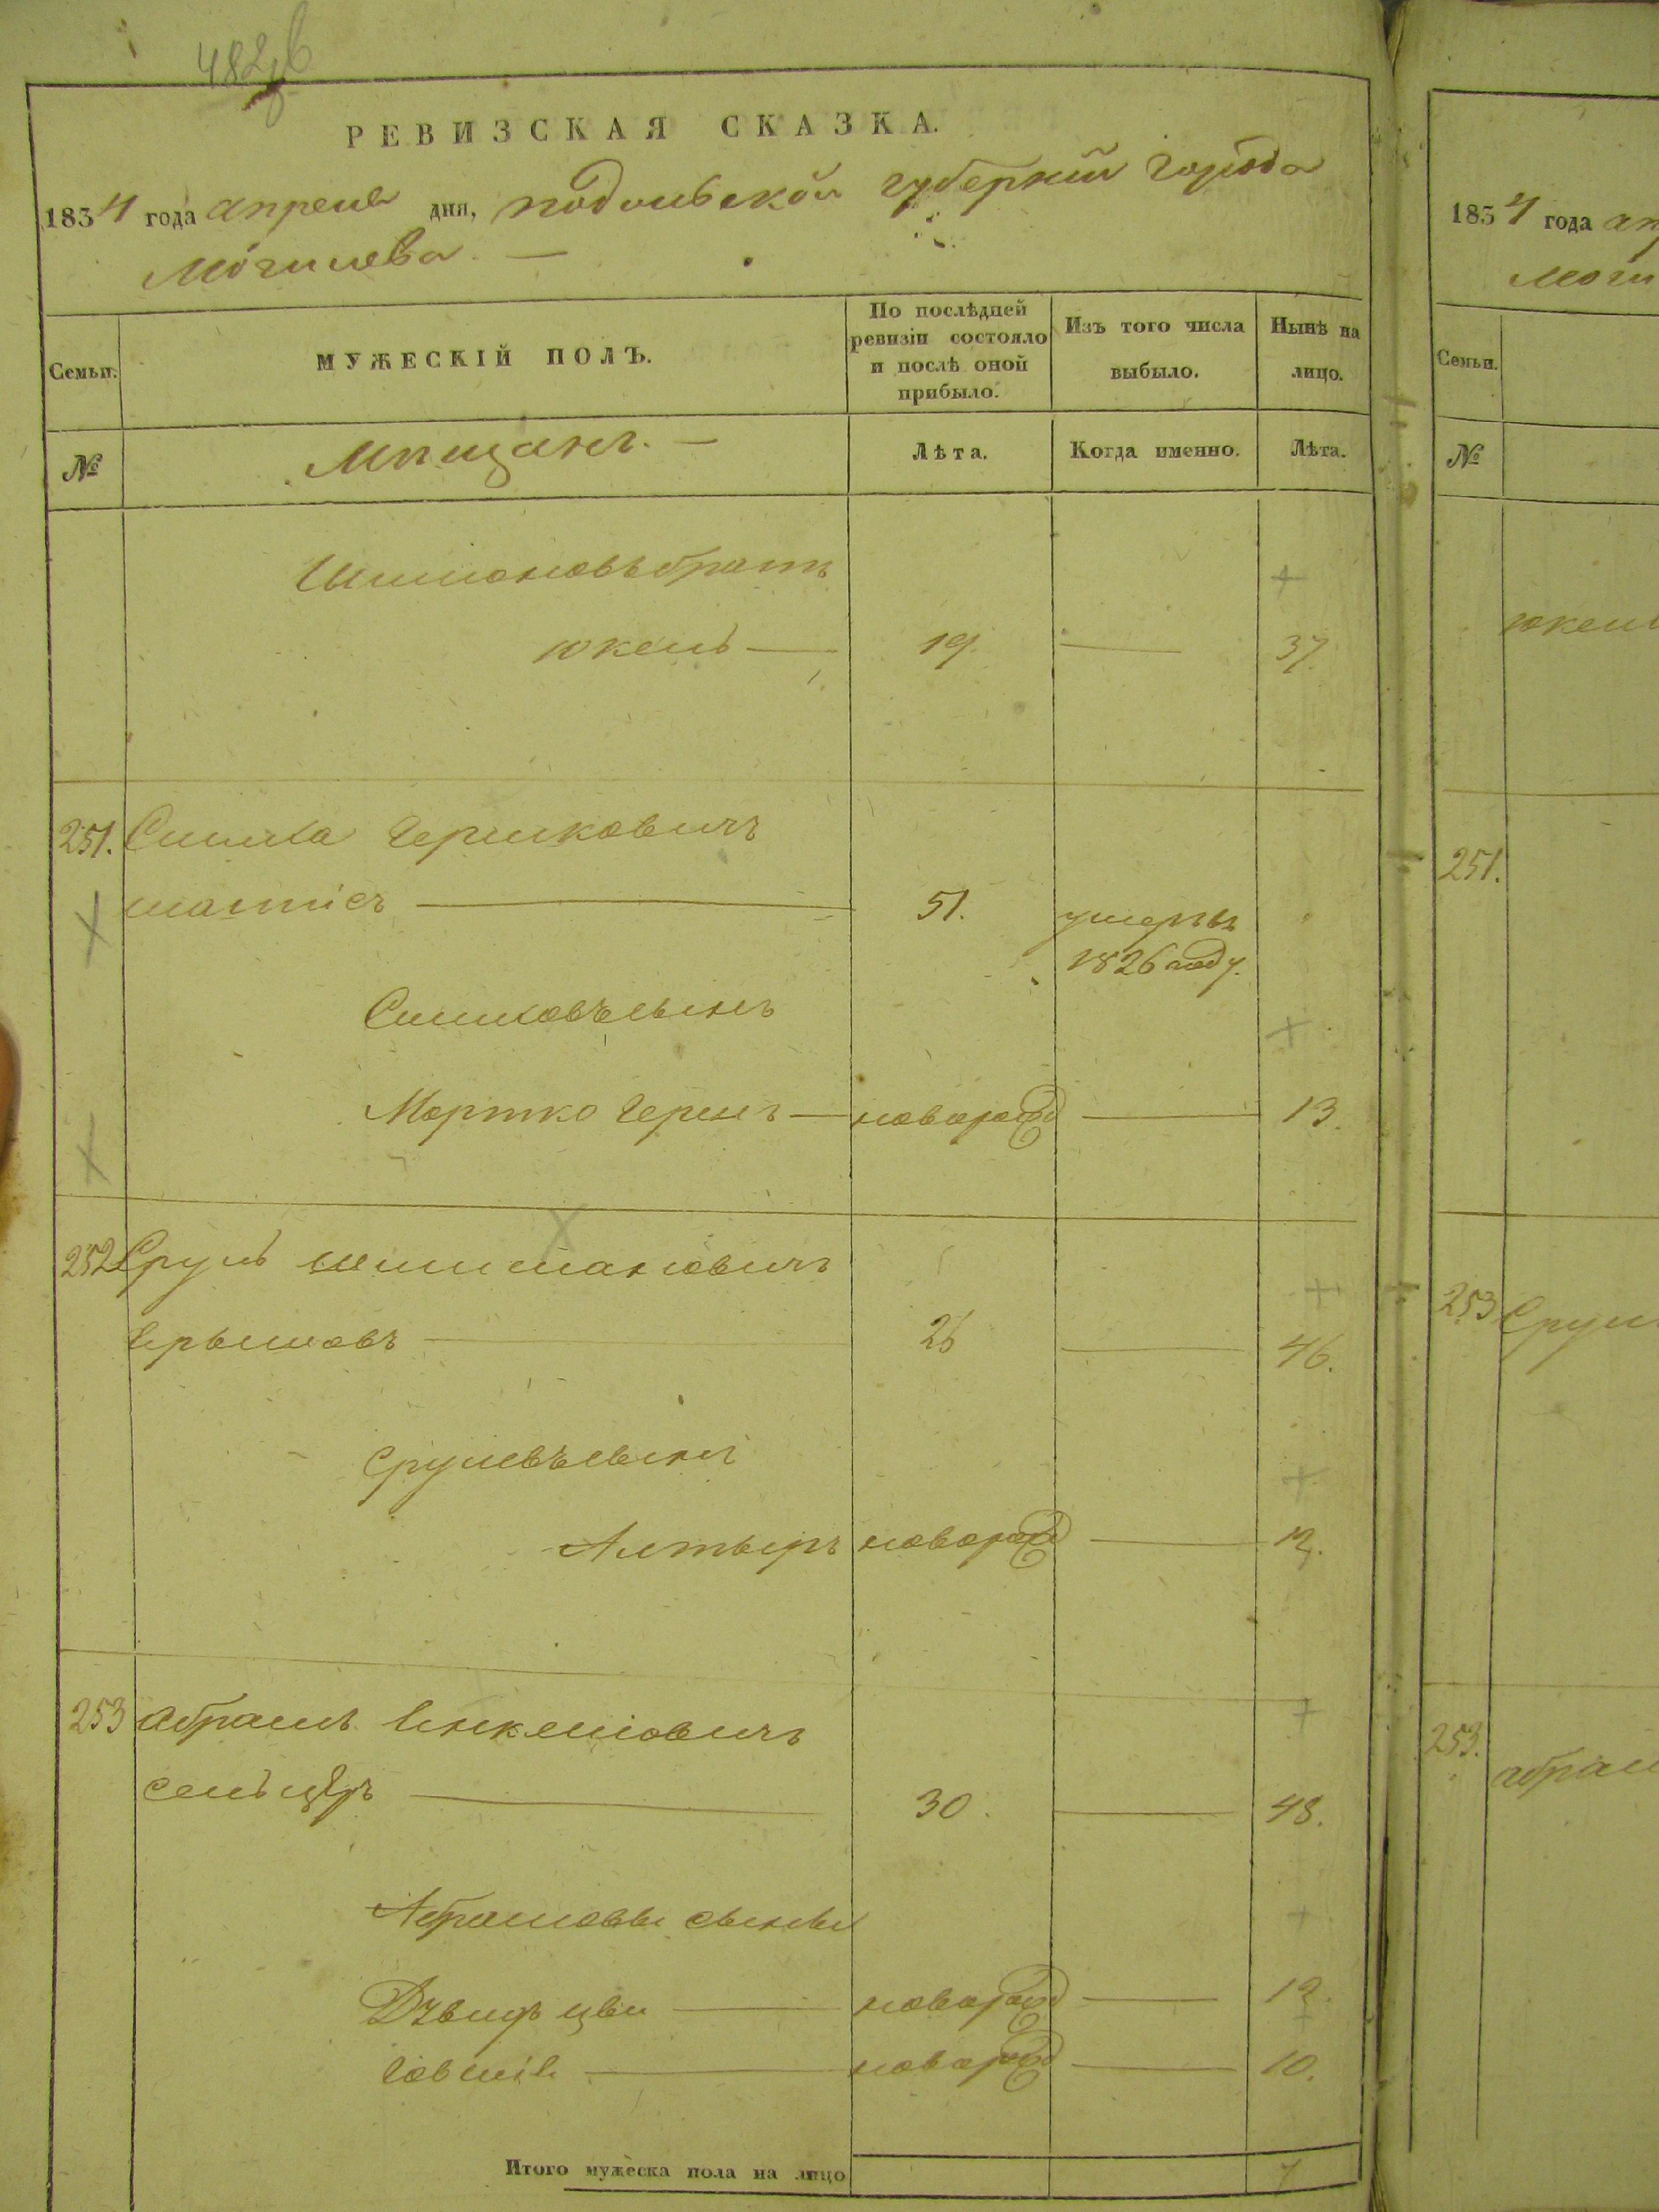 482
РЕВИЗСКАЯ СКАЗКА.
1834 года апреля дня, подольской губернии города
Могилева. —
Семьи.
МУЖЕСКІЙ ПОЛЪ.
По послѣдней ревизіи состояло и послѣ оной прибыло.
Изъ того числа выбыло.
Нынѣ на лицо.
№
Мѣщане. —
Лѣта.
Когда именно.
Лѣта.
братъ
юкель — 19 — 37.
251. Симха Гершковичъ
51. умеръ въ
1826 году.
Симховъ сынъ
Мортко Герш — новорожд — 13.
252 Сруль шмиловичъ
26 — 46.
Срулевъ сынъ
Алтыръ новорожд — 12.
253 абрамъ
сельцеръ — 30. — 48.
Абрамовы сыновья
цви — новорожд — 12.
— новорожд — 10.
Итого мужеска пола на лицо 7
1834 года ап
Моги
Семьи.
№
юкель
251.
253 Сруль
253. абрам